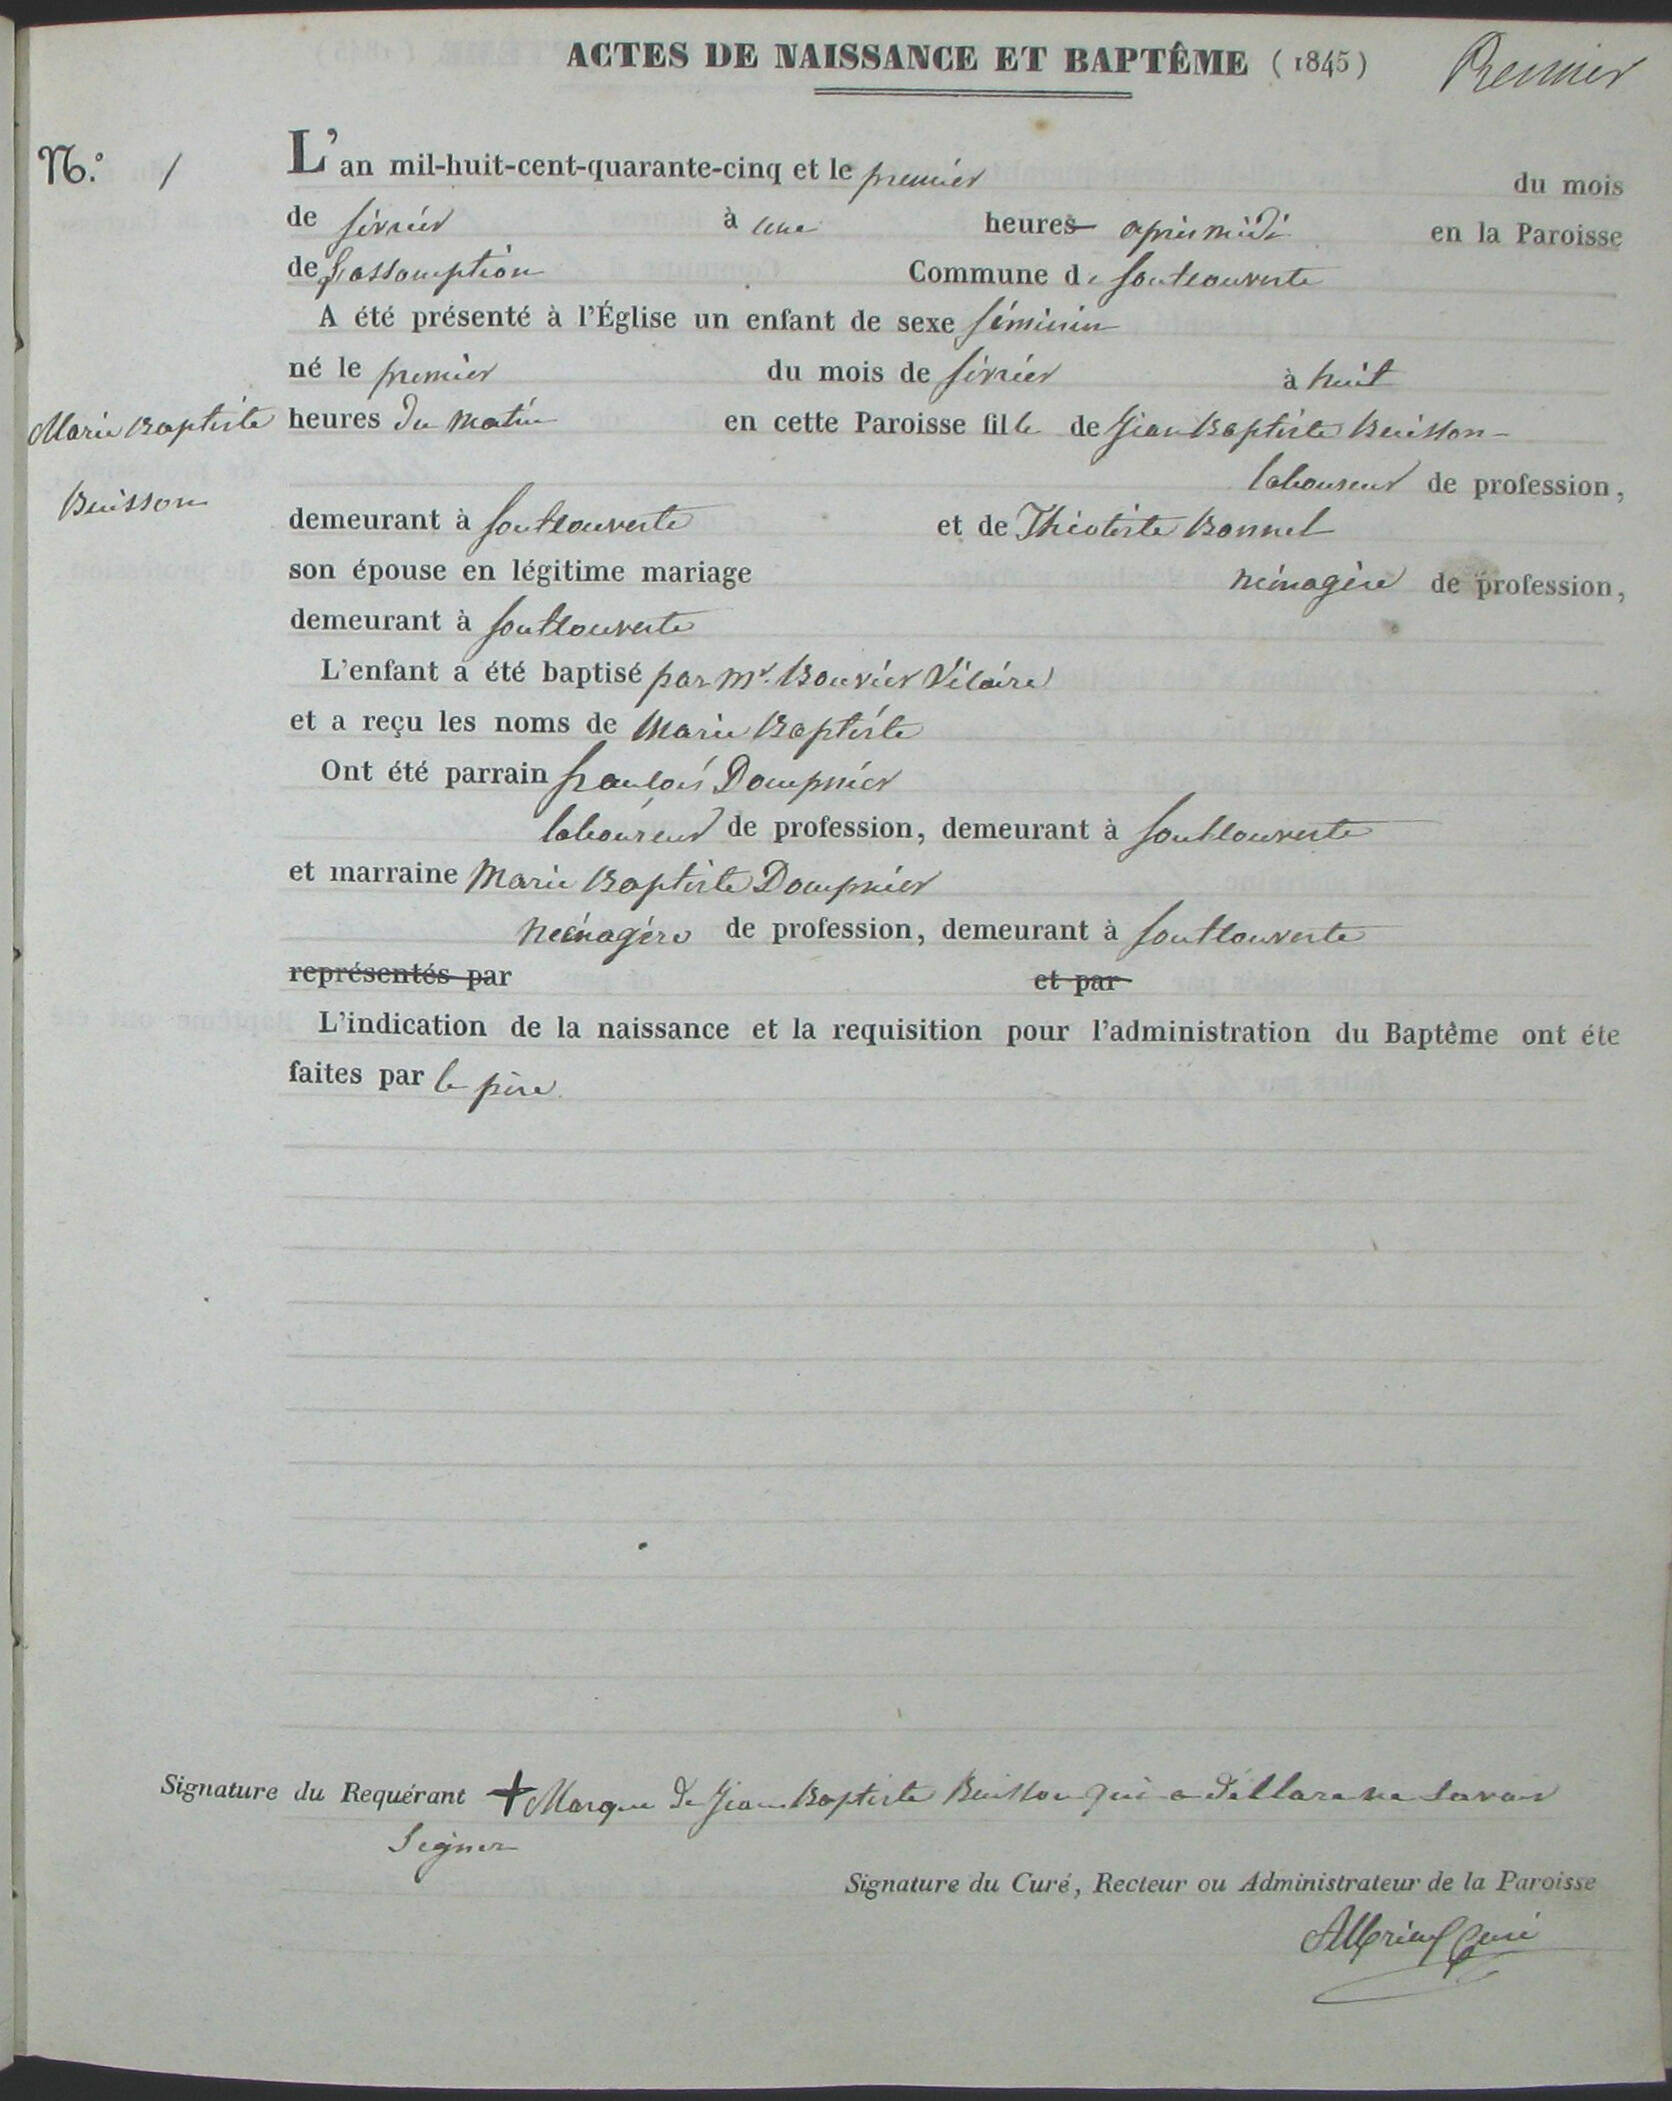 ACTES DE NAISSANCE ET BAPTÊME (1845) Premier
N.° 1 L'an mil-huit-cent-quarante-cinq et le premier du mois
de février à une heures après midi en la Paroisse
de l'assomption Commune de fontcouverte
A été présenté à l'Église un enfant de sexe féminin
né le premier du mois de février à huit
Marie Baptiste heures du matin en cette Paroisse fille de Jean Baptiste Buisson
laboureur de profession,
Buisson
demeurant à fontcouverte et de Théotiste Bonnel
son épouse en légitime mariage ménagère de profession,
demeurant à fontcouverte
L'enfant a été baptisé par Mr. Bouvier Vicaire
et a reçu les noms de Marie Baptiste
Ont été parrain françois Dompnier
laboureur de profession, demeurant à fontcouverte
et marraine Marie Baptiste Dompnier
ménagère de profession, demeurant à fontcouverte
représentés par et par
L'indication de la naissance et la requisition pour l'administration du Baptême ont éte
faites par le père
Signature du Requérant + Marque de Jean Baptiste Buisson qui a déclaré ne savoir
signer
Signature du Curé, Recteur ou Administrateur de la Paroisse
Curé